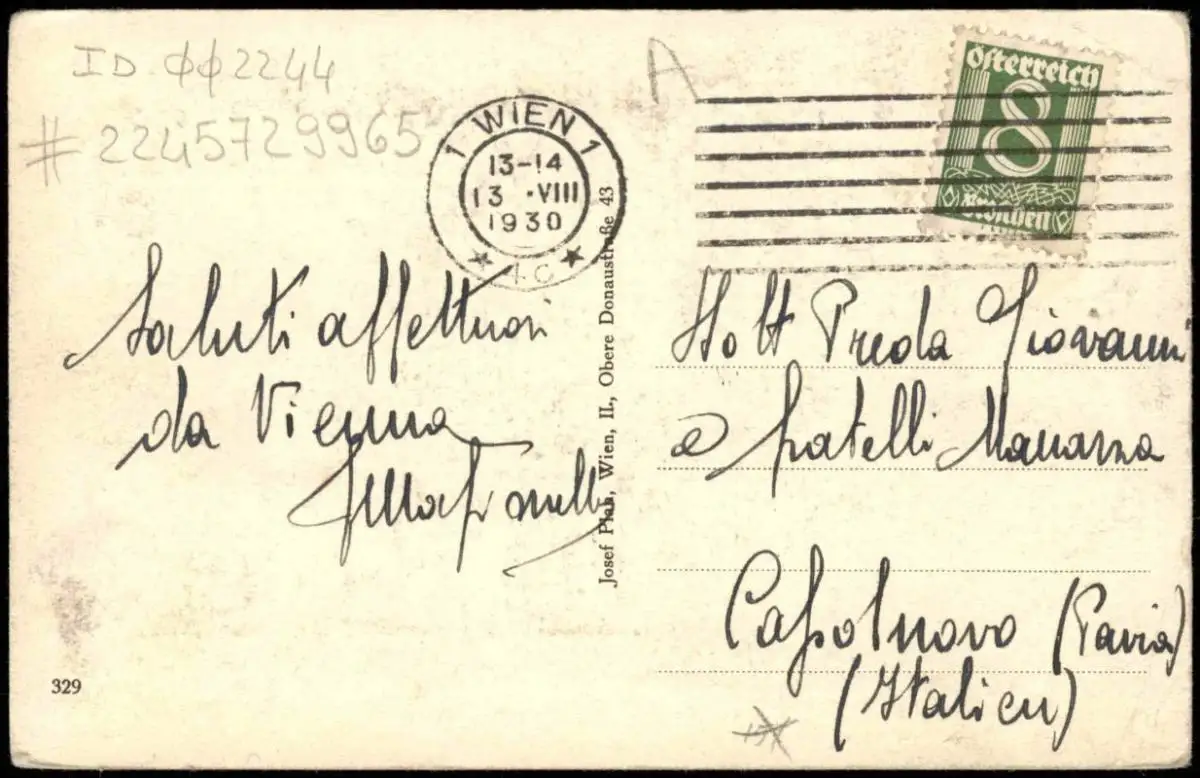 ID ØØ2244
# 2245729965
A
1 WIEN 1
13-14
13 ·VIII
1930
Österreich
8
Groschen
Saluti affettuosi
da Vienna
Josef Plah, Wien, II., Obere Donaustraße 43
Preda Giovanni
e fratelli
(Pavia)
(Italien)
329